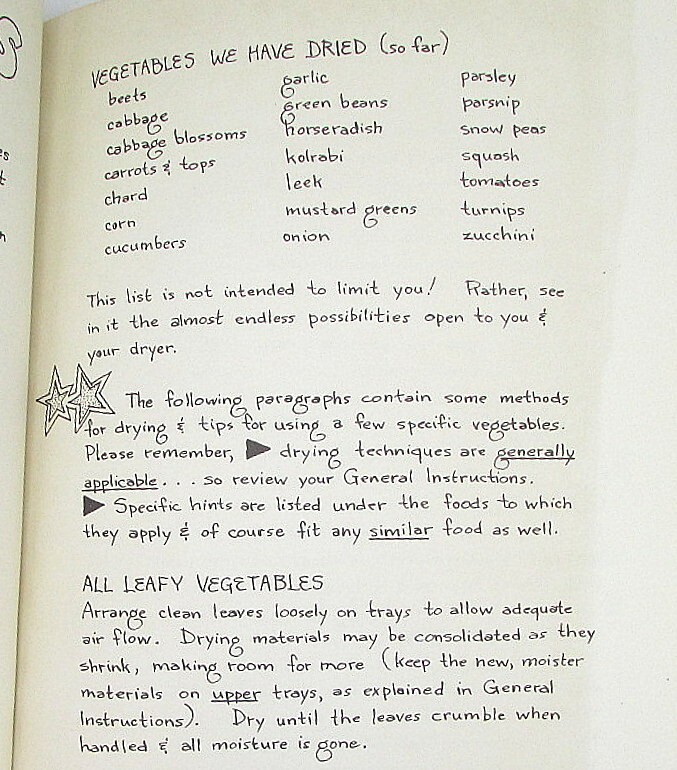 VEGETABLES WE HAVE DRIED (so far)
beets
cabbage
cabbage blossoms
carrots & tops
chard
corn
cucumbers
garlic
green beans
horseradish
kolrabi
leek
mustard greens
onion
parsley
parsnip
snow peas
squash
tomatoes
turnips
zucchini
This list is not intended to limit you! Rather, see
in it the almost endless possibilities open to you &
your dryer.
The following paragraphs contain some methods
for drying & tips for using a few specific vegetables.
Please remember, ▶ drying techniques are generally
applicable . . . so review your General Instructions.
▶ Specific hints are listed under the foods to which
they apply & of course fit any similar food as well.
ALL LEAFY VEGETABLES
Arrange clean leaves loosely on trays to allow adequate
air flow. Drying materials may be consolidated as they
shrink, making room for more (keep the new, moister
materials on upper trays, as explained in General
Instructions). Dry until the leaves crumble when
handled & all moisture is gone.